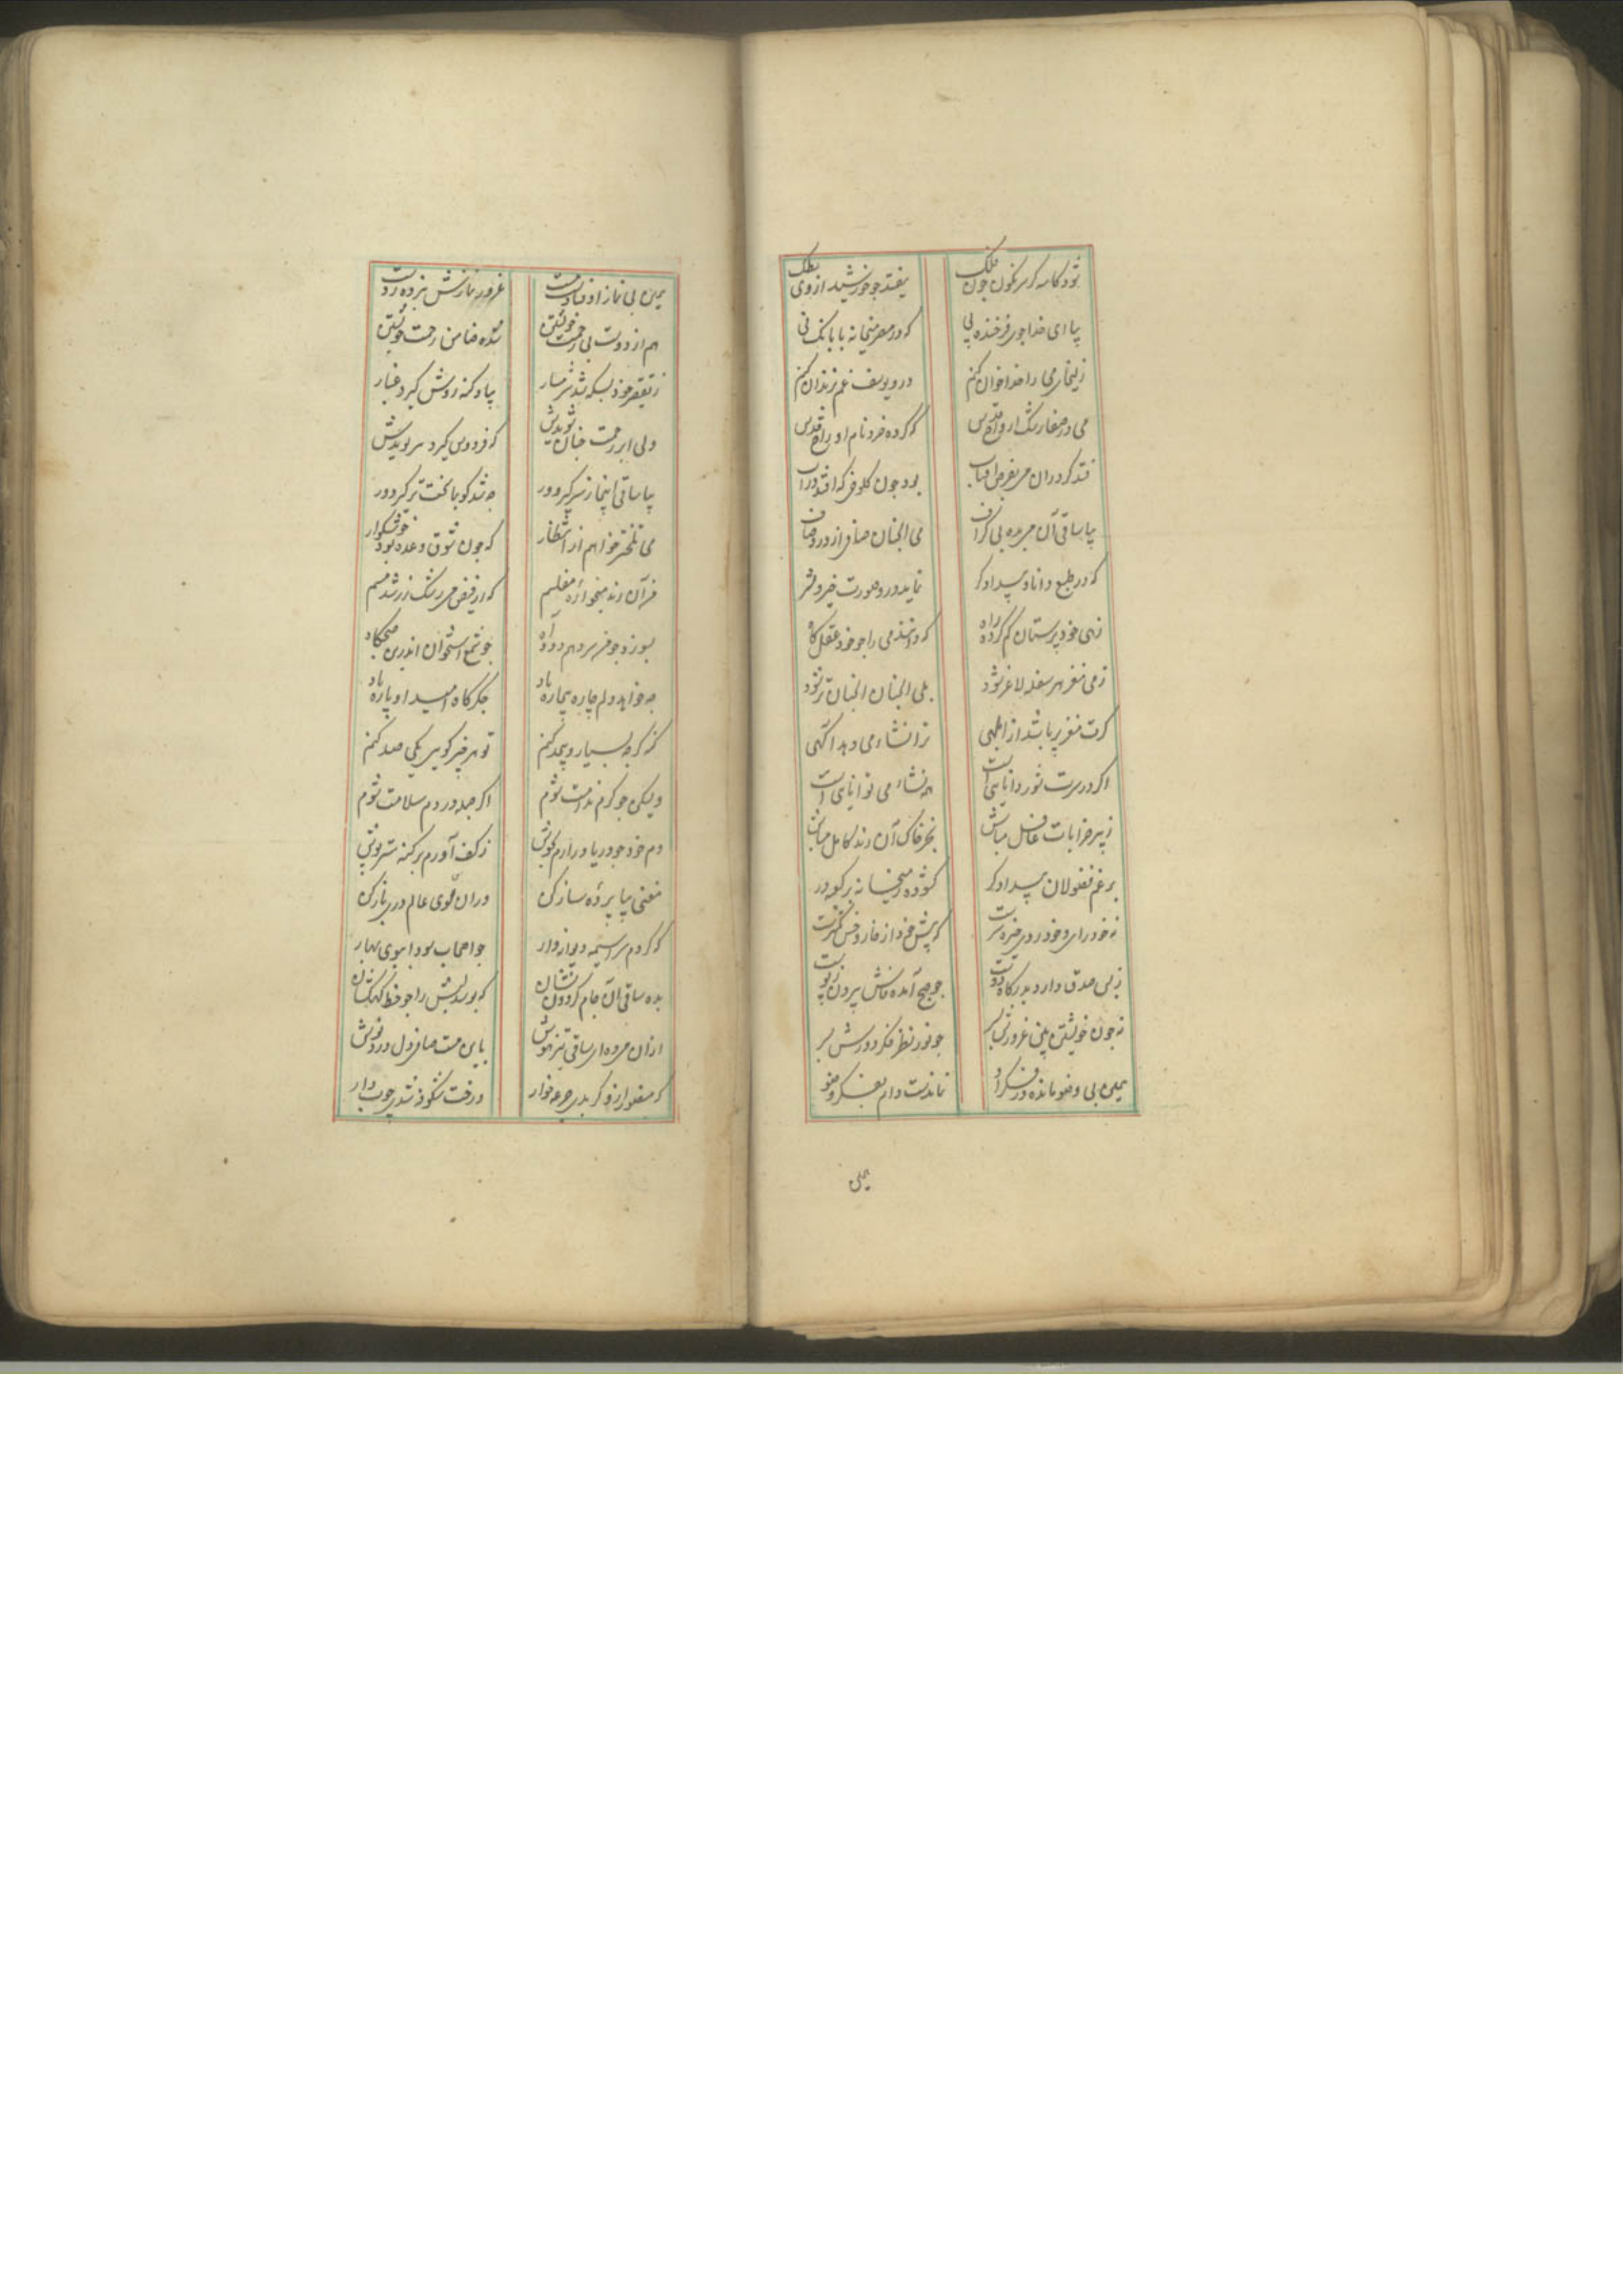 شود کاسه کر سرنکون چون فلک
بیفتد چو خورشید از وی
بیا ای خداجوی فرخنده پی
که در مصر میخانه با بانک نی
زلیخای می را خدا خوان کنم
درو یوسف غم زندان کنم
می در صفا رشک ارواح قدس
که کرده خرد نام او راح قدس
فتد کر در آن می بفرض آفتاب
بود چون کلوخی که افتد در آب
بیا ساقی آن می بده بی کزاف
می آنچنان صاف از درد صاف
که در طبع دانا و بیدادکر
نماید درو صورت خیر و شر
زهی خودپرستان کم کرده راه
که دانند می را چو خود عقل کاه
ز می مغز هر سفله لاغر شود
بلی آنچنان آنچنان‌تر شود
کرت مغز پر باشد از ابلهی
ترا نشاء می دهد آکهی
اکر در سرت شور دانایی است
همه نشاء می توانایی است
ز پیر خرابات غافل مباش
بجز خاک آن رند کامل مباش
برغم فضولان بیدادکر
کشوده ز میخانه بر کعبه در
نه خودرای و خودروی و خیره‌سر است
که پیش خرد از خار و خس کمتر است
ز بس صدق دارد بدرکاه دوست
چو صبح آمده صافش بیرون ز پوست
نه چون خویشتن بین غرورش بسر
چو نور نظر فکر دورش بسر
یمین بی وضو مانده در فکر او
نماندست دام بفکر وضو
یمین
یمین بی نماز اوفتادست مست
غرور نمازش نبرده ز دست
هم از دوست بی زحمت خویشتن
شده ضامن رحمت خویشتن
ز تقصیر خود بسکه شد شرمسار
بیاد کنه روش کیرد غبار
ولی ابر رحمت چنان شویدش
که فردوس کیرد سر بویدش
بیا ساقی اینجا ز سر کیر دور
چه شد کو با بخت تر کیر دور
می تلخ‌تر خواهم از انتظار
که چون شوق وعده بود خوشکوار
من آن رند میخواره مفلسم
که از فیض می رشک زر شد مسم
بسوزد چو قهر دهم دود آه
چو شمع استخوان اندرین صبحکاه
چه خواهد دلم چاره بیچاره باد
جکرکاه امید او پاره باد
کنه کرچه بسیار و بیحد کنم
تو هر چیز کویی یکی صد کنم
ولیکن چو کرم ندامت شوم
اکر جمله دردم سلامت شوم
دم خود چو دریا درآرم بجوش
ز کف آورم بر کنه سرپوش
مغنی بیا پرده ساز کن
در آن سوی عالم دری باز کن
که کردم سراسیمه دیوانه‌وار
چو اصحاب سودا ببوی بهار
بده ساقی آن جام کردون نشان
که بوسد لبش را چو خط کهکشان
از آن می ده ای ساقی تیزهوش
باین مست صافی دل دردنوش
که منصور ازو کر بدی جرعه‌خوار
درخت شکوفه شدی چوب دار